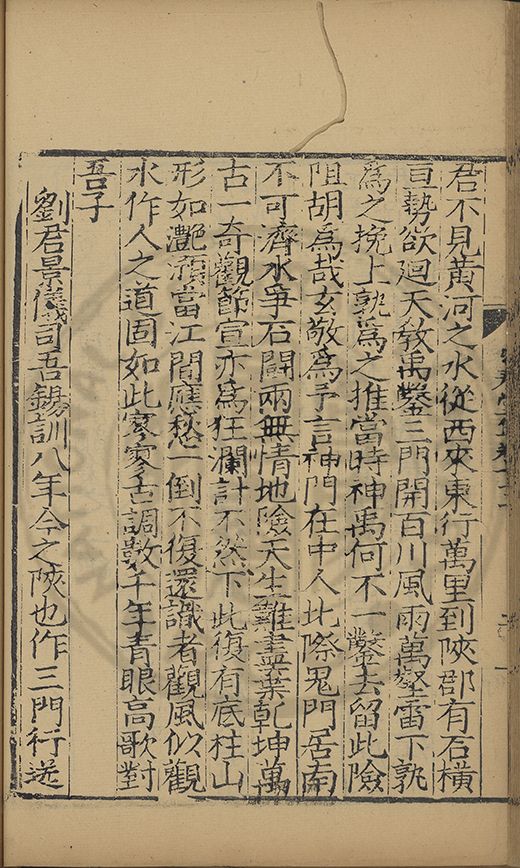 君不見黃河之水從西來東行萬里到陝郡有石橫
亘勢欲廻天敎禹鑿三門開百川風雨萬壑雷下孰
爲之挽上孰爲之推當時神禹何不一鑿去留此險
阻胡爲哉玄敬爲予言神門在中人北際鬼門居南
不可濟水爭石鬪兩無情地險天生難盡葉乾坤萬
古一奇觀節宣亦爲狂瀾計不然下此復有底柱山
形如灔澦當江間應愁一倒不復還識者觀風似觀
水作人之道固如此寥寥古調數千年青眼高歌對
吾子
劉君景儀司吾錫訓八年今之陝也作三門行送